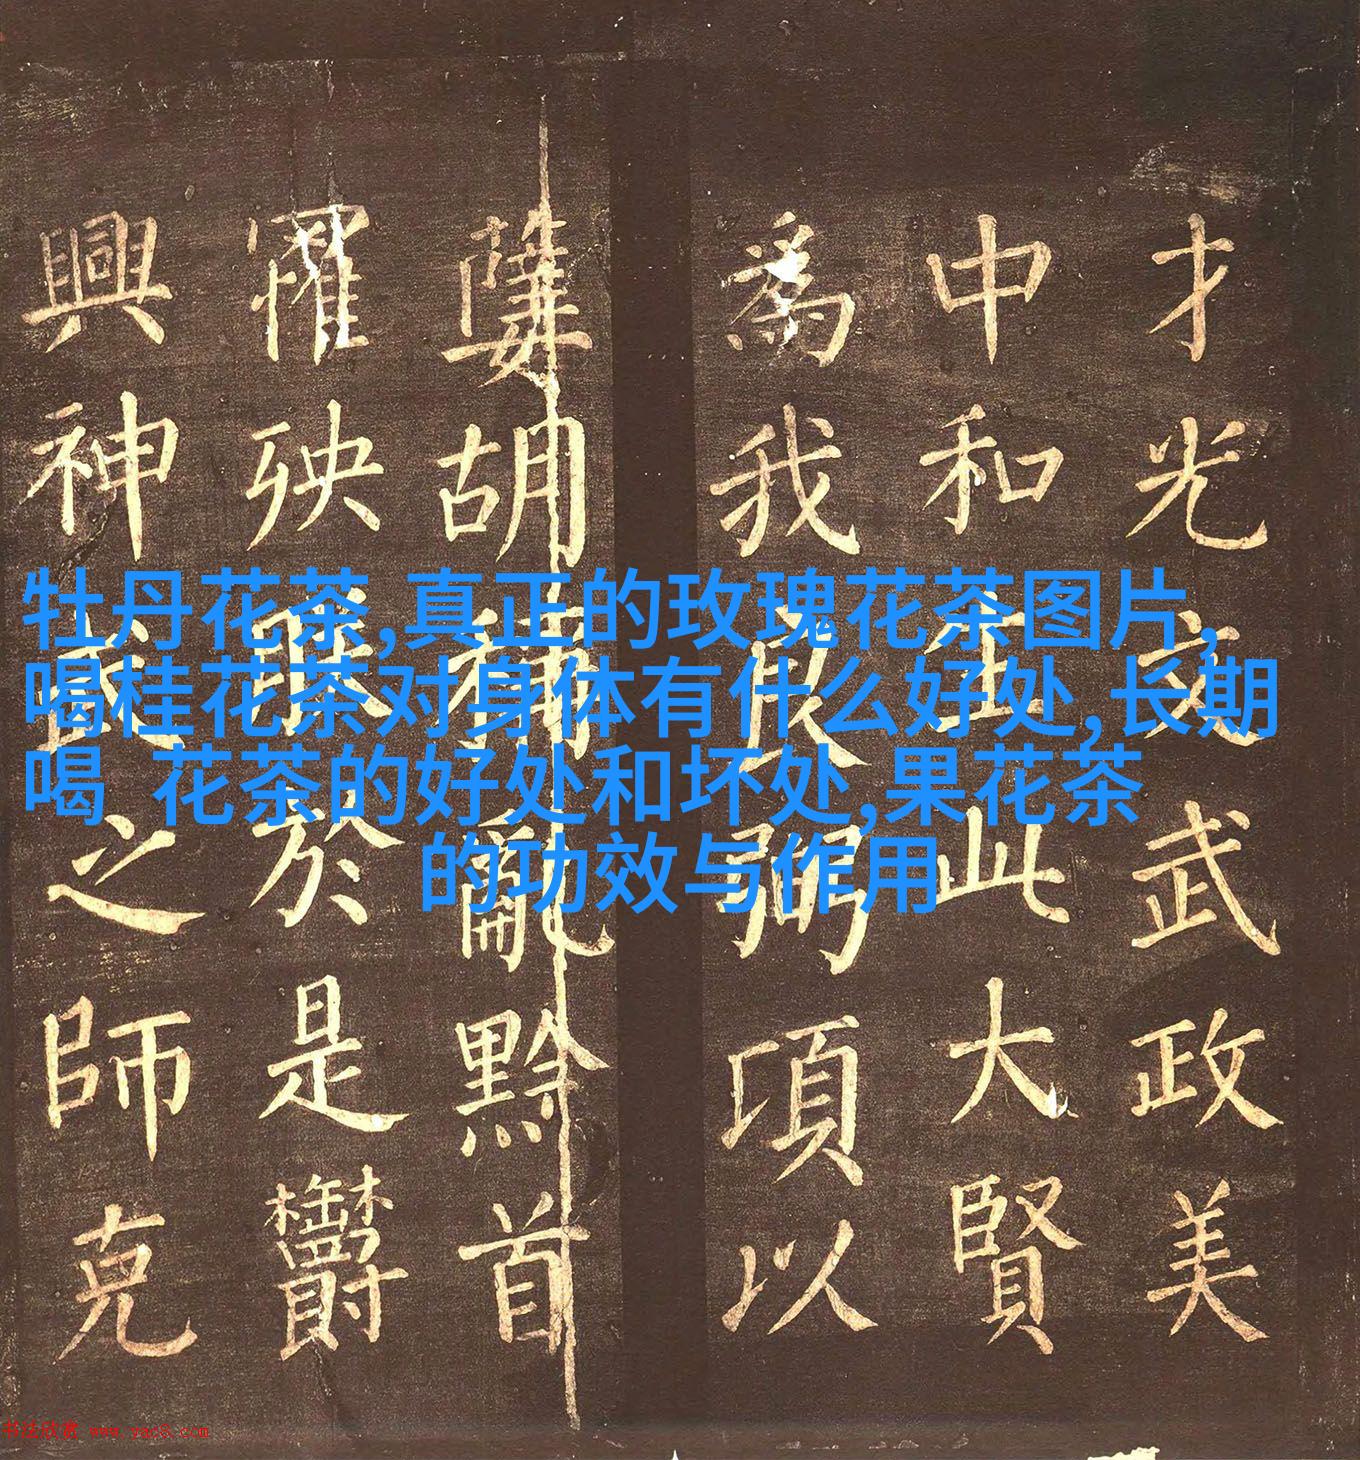 牡丹花茶,真正的玫瑰花茶图片,
喝桂花茶对身体有什么好处,长期
喝 花茶的好处和坏处,果花茶
的功效与作用
才光文武政美
中和生此大賢
為我良弼項以
胡構亂黔首
罹殃於是鬱
興神武之師克
书法欣赏 www.yac8.com